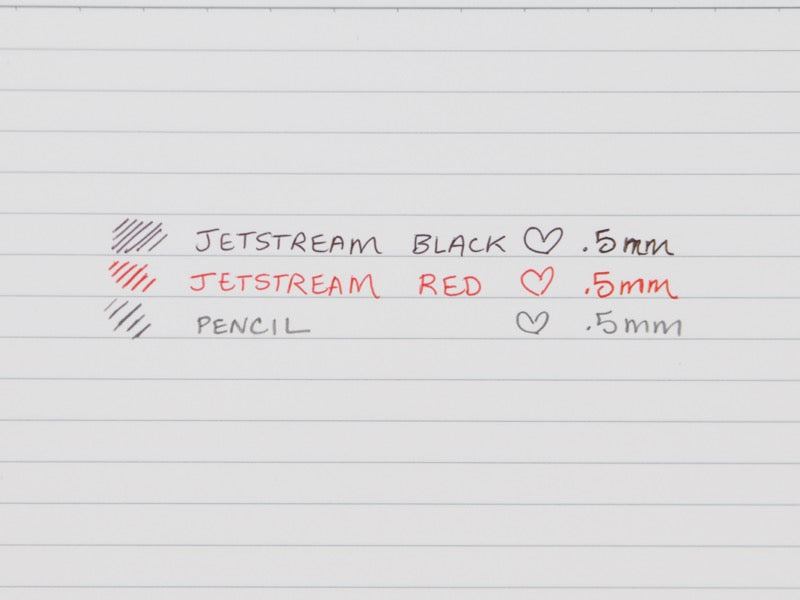 JETSTREAM BLACK ♡ .5mm
JETSTREAM RED ♡ .5mm
PENCIL ♡ .5mm